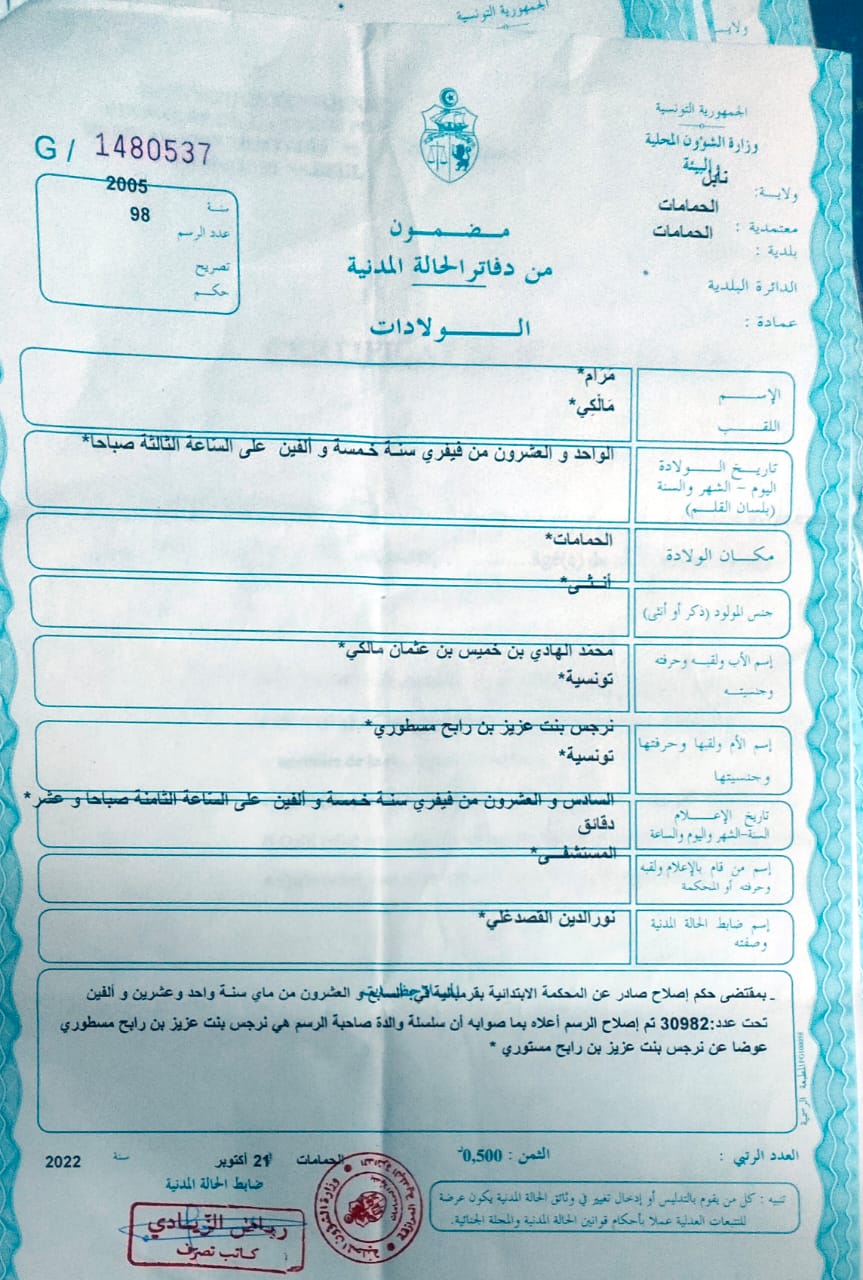 الجمهورية التونسية
ولايـة
الجمهورية التونسية
وزارة الشؤون المحلية
والبيئة
ولايـــة: نابل
معتمدية : الحمامات
بلدية : الحمامات
الدائرة البلدية
عمادة :
G / 1480537
سنة 2005
عدد الرسم 98
تصريح
حكم
مـضـمـون
من دفاتر الحالة المدنية
الـــولادات
الإســـم مَرَام*
اللقـــب مَالْكِي*
تاريـخ الـــولادة الواحد و العشرون من فيفري سنة خمسة و ألفين على الساعة الثالثة صباحا*
اليوم - الشهر والسنة
(بلسان القلـم)
مكـان الولادة الحمامات*
جنس المولود (ذكر أو أنثى) أنـثـى*
إسم الأب ولقبـه وحرفته محمّد الهادي بن خميس بن عثمان مالكي*
وجنسيتـه تونسية*
إسم الأم ولقبها وحرفتها نرجس بنت عزيز بن رابح مسطوري*
وجنسيتها تونسية*
تاريخ الإعـــلام السادس و العشرون من فيفري سنة خمسة و ألفين على الساعة الثامنة صباحا و عشر*
السنة-الشهر واليوم والساعة دقائق
إسم من قام بالإعلام ولقبه المستشفـى*
وحرفته أو المحكمة
إسم ضابط الحالة المدنية نورالدين القصدغلي*
وصفته
ـ بمقتضى حكم إصلاح صادر عن المحكمة الابتدائية بقرمبالية في السابع و العشرون من ماي سنة واحد وعشرين و ألفين
تحت عدد:30982 تم إصلاح الرسم أعلاه بما صوابه أن سلسلة والدة صاحبة الرسم هي نرجس بنت عزيز بن رابح مسطوري
عوضا عن نرجس بنت عزيز بن رابح مستوري *
المطبعة الرسمية
العدد الرتبي : الثمن : 0,500د الحمامات 21 أكتوبر سنة 2022
ضابط الحالة المدنية
رياض الزيادي
كاتب تصرف
تنبيه : كل من يقوم بالتدليس أو إدخال تغيير في وثائق الحالة المدنية يكون عرضة
للتتبعات العدلية عملا بأحكام قوانين الحالة المدنية والمجلة الجنائية.